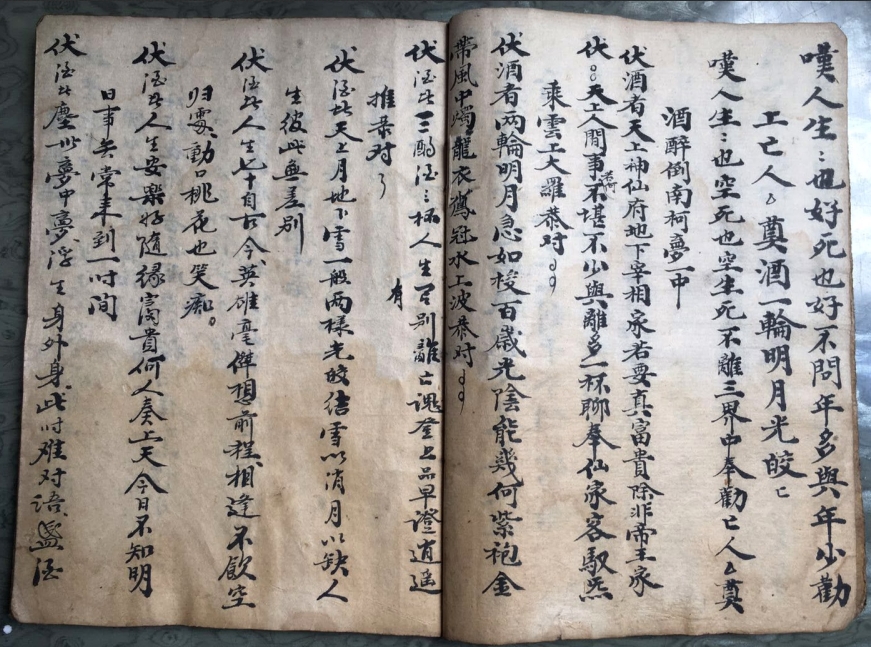 嘆人生〻也好死也好不問年多與年少勸
亡人〻奠酒一輪明月光皎〻
嘆人生〻也空死也空生死不離三界中奉勸亡人〻奠
酒醉倒南柯夢一中
伏酒者天上神仙府地下宰相家若要真富貴除非帝王家
伏〻天上人間事不堪不少與離多一杯聊奉仙家客馭炁
乘雲上大羅恭对
伏酒者两輪明月急如梭百歲光陰能幾何紫袍金
帶風中燭龍衣鳳冠水上波恭对
伏酒此三酌酒〻楊人生有别離亡魂登上品早證逍遥
推恭对
伏酒此天上月地下雪一般两樣光皎结雪以消月以缺人
生彼此無差别
伏酒此人生七十自古今英雄毫傑想前程相逢不飲空
归處動口桃花也笑痴。
伏酒此人生安樂好隨緣富貴何人奏上天今日不知明
日事無常来到一时间
伏酒此塵世夢中夢浮生身外身此时难对語盞酒